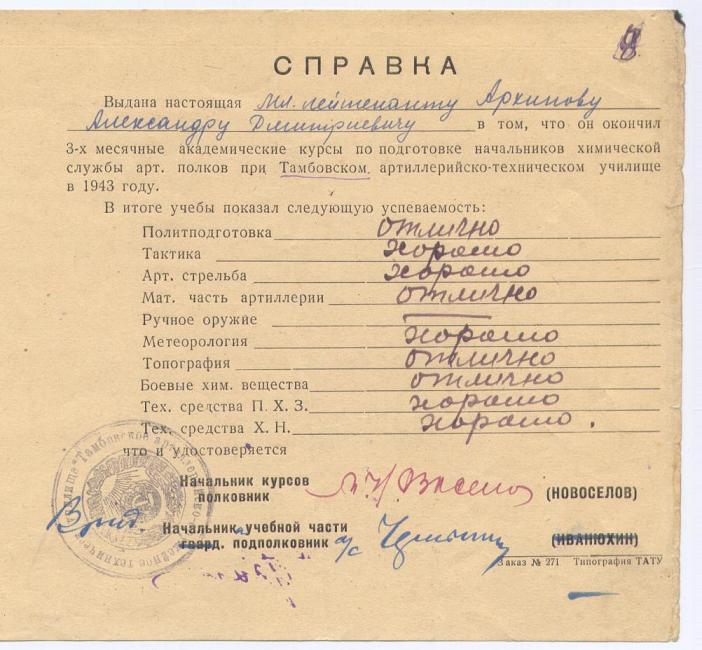 8
СПРАВКА
Выдана настоящая Мл. лейтенанту Архипову
Александру Дмитриевичу в том, что он окончил
3-х месячные академические курсы по подготовке начальников химической
службы арт. полков при Тамбовском артиллерийско-техническом училище
в 1943 году.
В итоге учебы показал следующую успеваемость:
Политподготовка отлично
Тактика хорошо
Арт. стрельба хорошо
Мат. часть артиллерии отлично
Ручное оружие —
Метеорология хорошо
Топография отлично
Боевые хим. вещества отлично
Тех. средства П. Х. З. хорошо
Тех. средства Х. Н. хорошо.
что и удостоверяется
Начальник курсов
полковник (НОВОСЕЛОВ)
Врид. Начальник учебной части
гвард. подполковник а/с (ИВАНЮХИН)
Заказ № 271 Типография ТАТУ